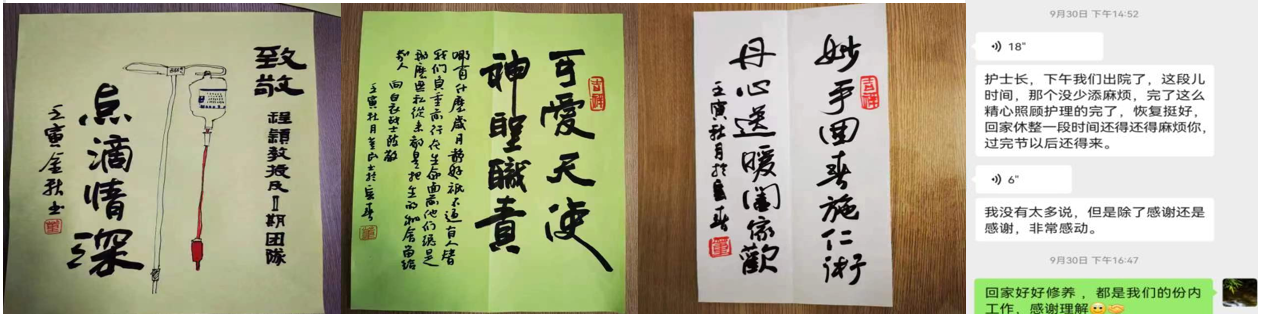 致敬
程穎教授及Ⅱ期團隊
点滴情深
壬寅金秋书
可愛天使
吉祥
神聖職責
哪有什麽歲月靜好祇不過有人替
我们負重前行在生命面前他们總是
那麽無私從來都是把生的机會留給
别人 向白衣战士致敬
妙手回春施仁術
吉祥
丹心送暖闔家歡
9月30日 下午14:52
18"
护士长，下午我们出院了，这段儿
时间，那个没少添麻烦，完了这么
精心照顾护理的完了，恢复挺好，
回家休整一段时间还得还得麻烦你，
过完节以后还得来。
6"
我没有太多说，但是除了感谢还是
感谢，非常感动。
9月30日 下午16:47
回家好好修养，都是我们的份内
工作，感谢理解